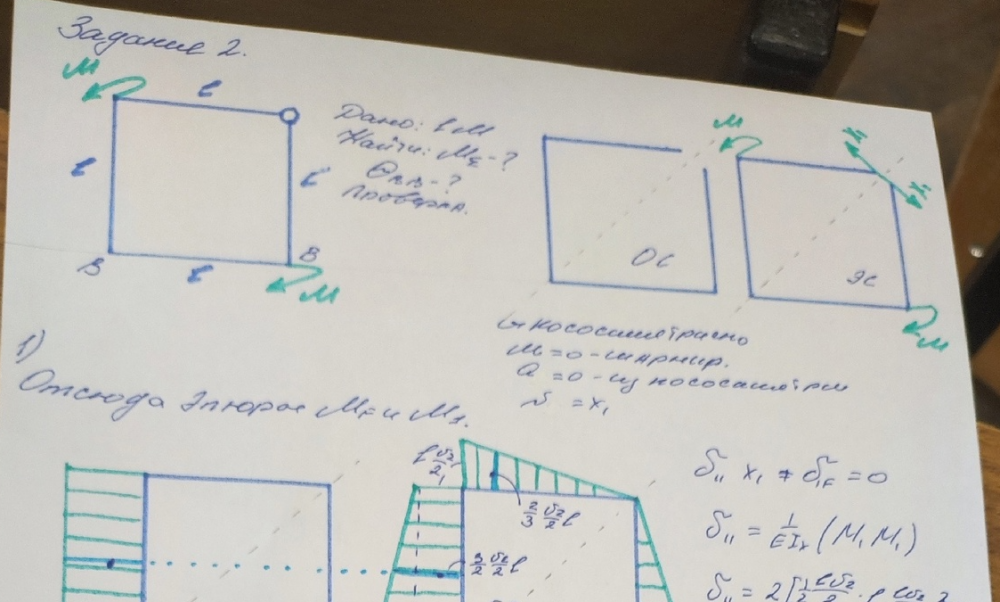 Задание 2.
M
l
Дано: l M
Найти: MΣ - ?
θBB - ?
Проверка.
l
l
B
l
B
M
M
X₁
X₁
ОС
ЭС
M
↳ кососиметрично
M = 0 - шарнир.
Q = 0 - из кососиметрии
N = X₁
1)
Отсюда эпюры MF и M1.
l √2/2
2/3 √2/2 l
3/2 √2/2 l
δ₁₁ X₁ + δ₁F = 0
δ₁₁ = 1/EIx (M₁ M₁)